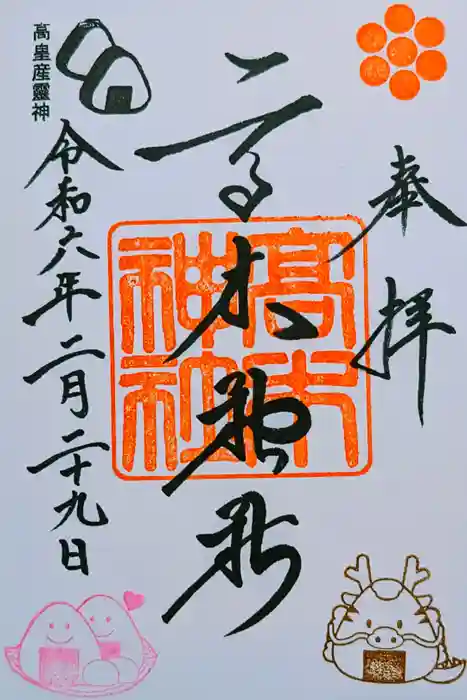 奉拝
高木神社
高木神社
令和六年二月二十九日
高皇産靈神